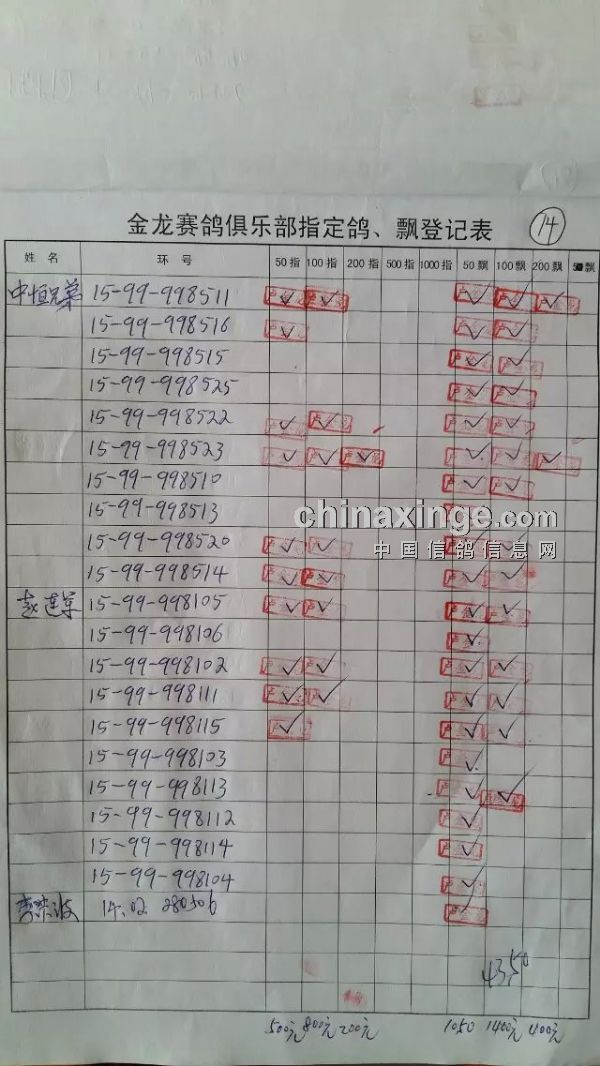 金龙赛鸽俱乐部指定鸽、飘登记表 14
姓名 环号 50指 100指 200指 500指 1000指 50飘 100飘 200飘
中恒兄弟 15-99-998511 ✓ ✓ ✓ ✓ ✓
15-99-998516 ✓ ✓ ✓
15-99-998515 ✓ ✓
15-99-998525 ✓ ✓
15-99-998522 ✓ ✓ ✓ ✓
15-99-998523 ✓ ✓ ✓ ✓ ✓ ✓
15-99-998510 ✓ ✓
15-99-998513
chinaxinge.com
中国信鸽信息网
15-99-998520 ✓ ✓ ✓ ✓
15-99-998514 ✓ ✓ ✓ ✓
赵连军 15-99-998105 ✓ ✓ ✓ ✓
15-99-998106 ✓
15-99-998102 ✓ ✓ ✓ ✓
15-99-998111 ✓ ✓ ✓ ✓
15-99-998115 ✓ ✓ ✓
15-99-998103 ✓
15-99-998113 ✓ ✓
15-99-998112 ✓
15-99-998114 ✓
15-99-998104 ✓
14.02 280506 ✓
4350
500元 800元 200元 1050 1400元 400元